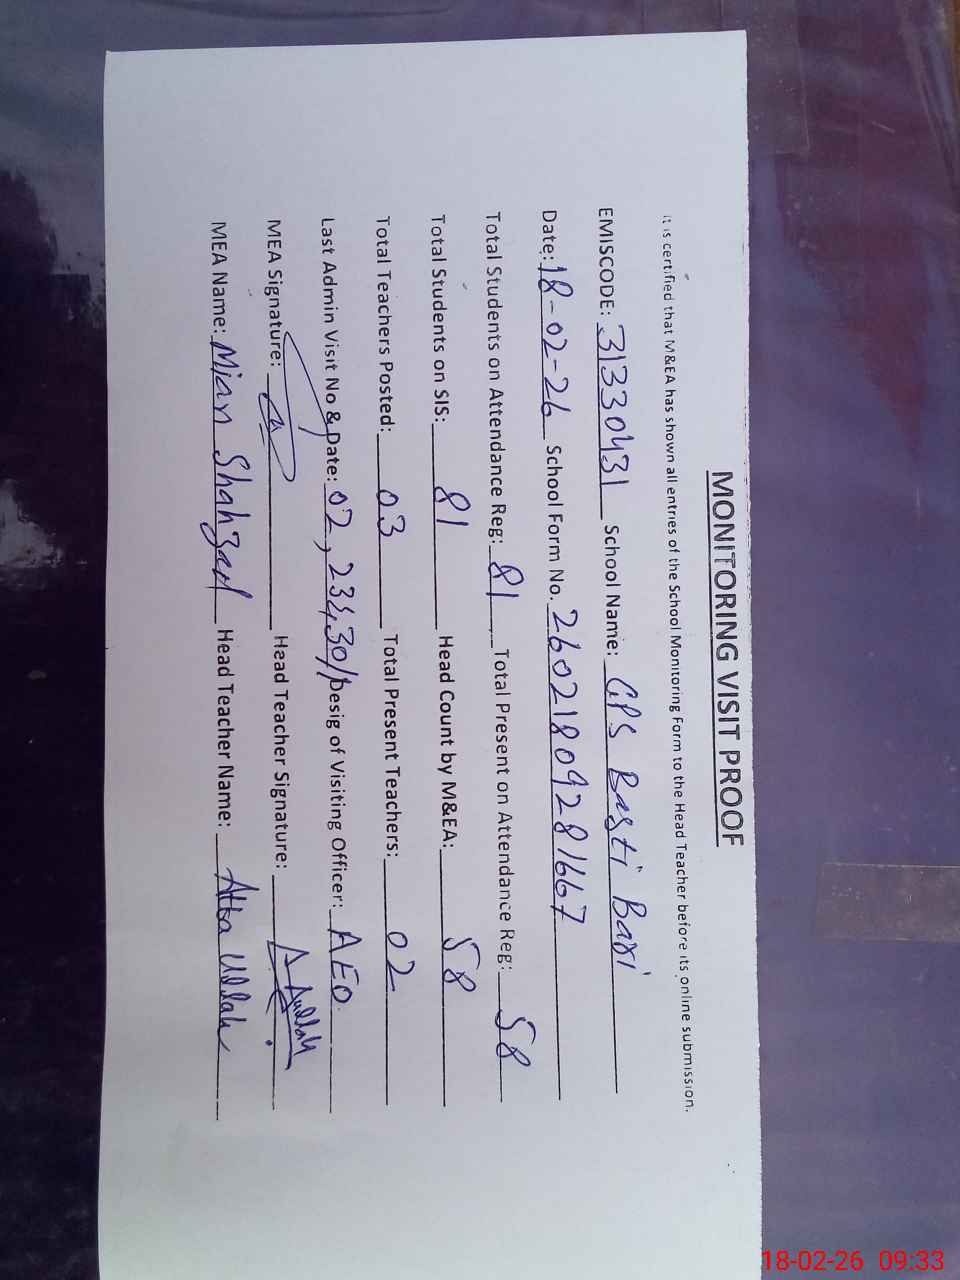 MONITORING VISIT PROOF
It is certified that M&EA has shown all entries of the School Monitoring Form to the Head Teacher before its online submission.
EMISCODE: 31330431 School Name: GPS Basti Baxi
Date: 18-02-26 School Form No. 26021809281667
Total Students on Attendance Reg: 81 Total Present on Attendance Reg: 58
Total Students on SIS: 81 Head Count by M&EA: 58
Total Teachers Posted: 03 Total Present Teachers: 02
Last Admin Visit No & Date: 02, Desig of Visiting Officer: AEO
MEA Signature: Head Teacher Signature:
MEA Name: Mian Shahzad Head Teacher Name: Atta Ullah
18-02-26 09:33